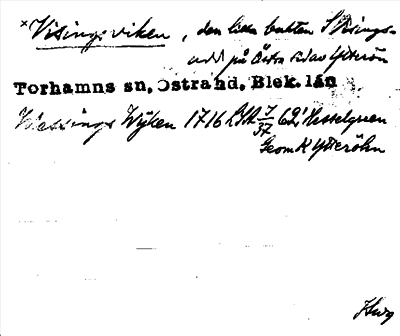 ×Visingsviken, den lilla bukten S Visings-
udd på Östra sidan Ytterön
Torhamns sn, Östra hd, Blek. län
Wässings Wyken 1716 LSA 7/37 62' Hesselgreen
Geom K Ytteröhn